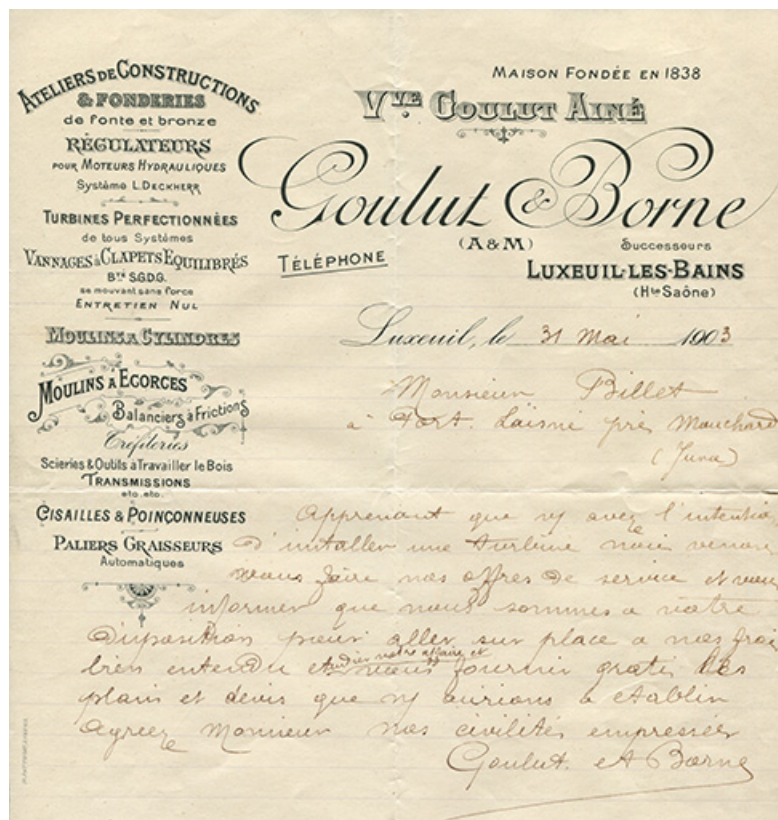 ATELIERS DE CONSTRUCTIONS
& FONDERIES
de fonte et bronze
RÉGULATEURS
POUR MOTEURS HYDRAULIQUES
Système L. DECKHERR
TURBINES PERFECTIONNÉES
de tous Systèmes
VANNAGES à CLAPETS EQUILIBRÉS
Bté S.G.D.G.
se mouvant sans force
ENTRETIEN NUL
MOULINS A CYLINDRES
MOULINS A ECORCES
Balanciers à Frictions
Tréfileries
Scieries & Outils à Travailler le Bois
TRANSMISSIONS
etc. etc.
CISAILLES & POINÇONNEUSES
PALIERS GRAISSEURS
Automatiques
MAISON FONDÉE EN 1838
VVE GOULUT AINÉ
Goulut & Borne
(A & M) Successeurs
TÉLÉPHONE
LUXEUIL-LES-BAINS
(Hte Saône)
Luxeuil, le 31 Mai 1903
Monsieur Billet
à Port. Laisné près Mouchard
(Jura)
Apprenant que vs avez l'intention
d'installer une turbine nous venons
vous faire nos offres de service et vous
informer que nous sommes a votre
disposition pour aller sur place a nos frais
bien entendu etudier votre affaire et vous fournir gratis les
plans et devis que vs aurions a etablir
Agreez Monsieur nos civilités empressées
Goulut et Borne